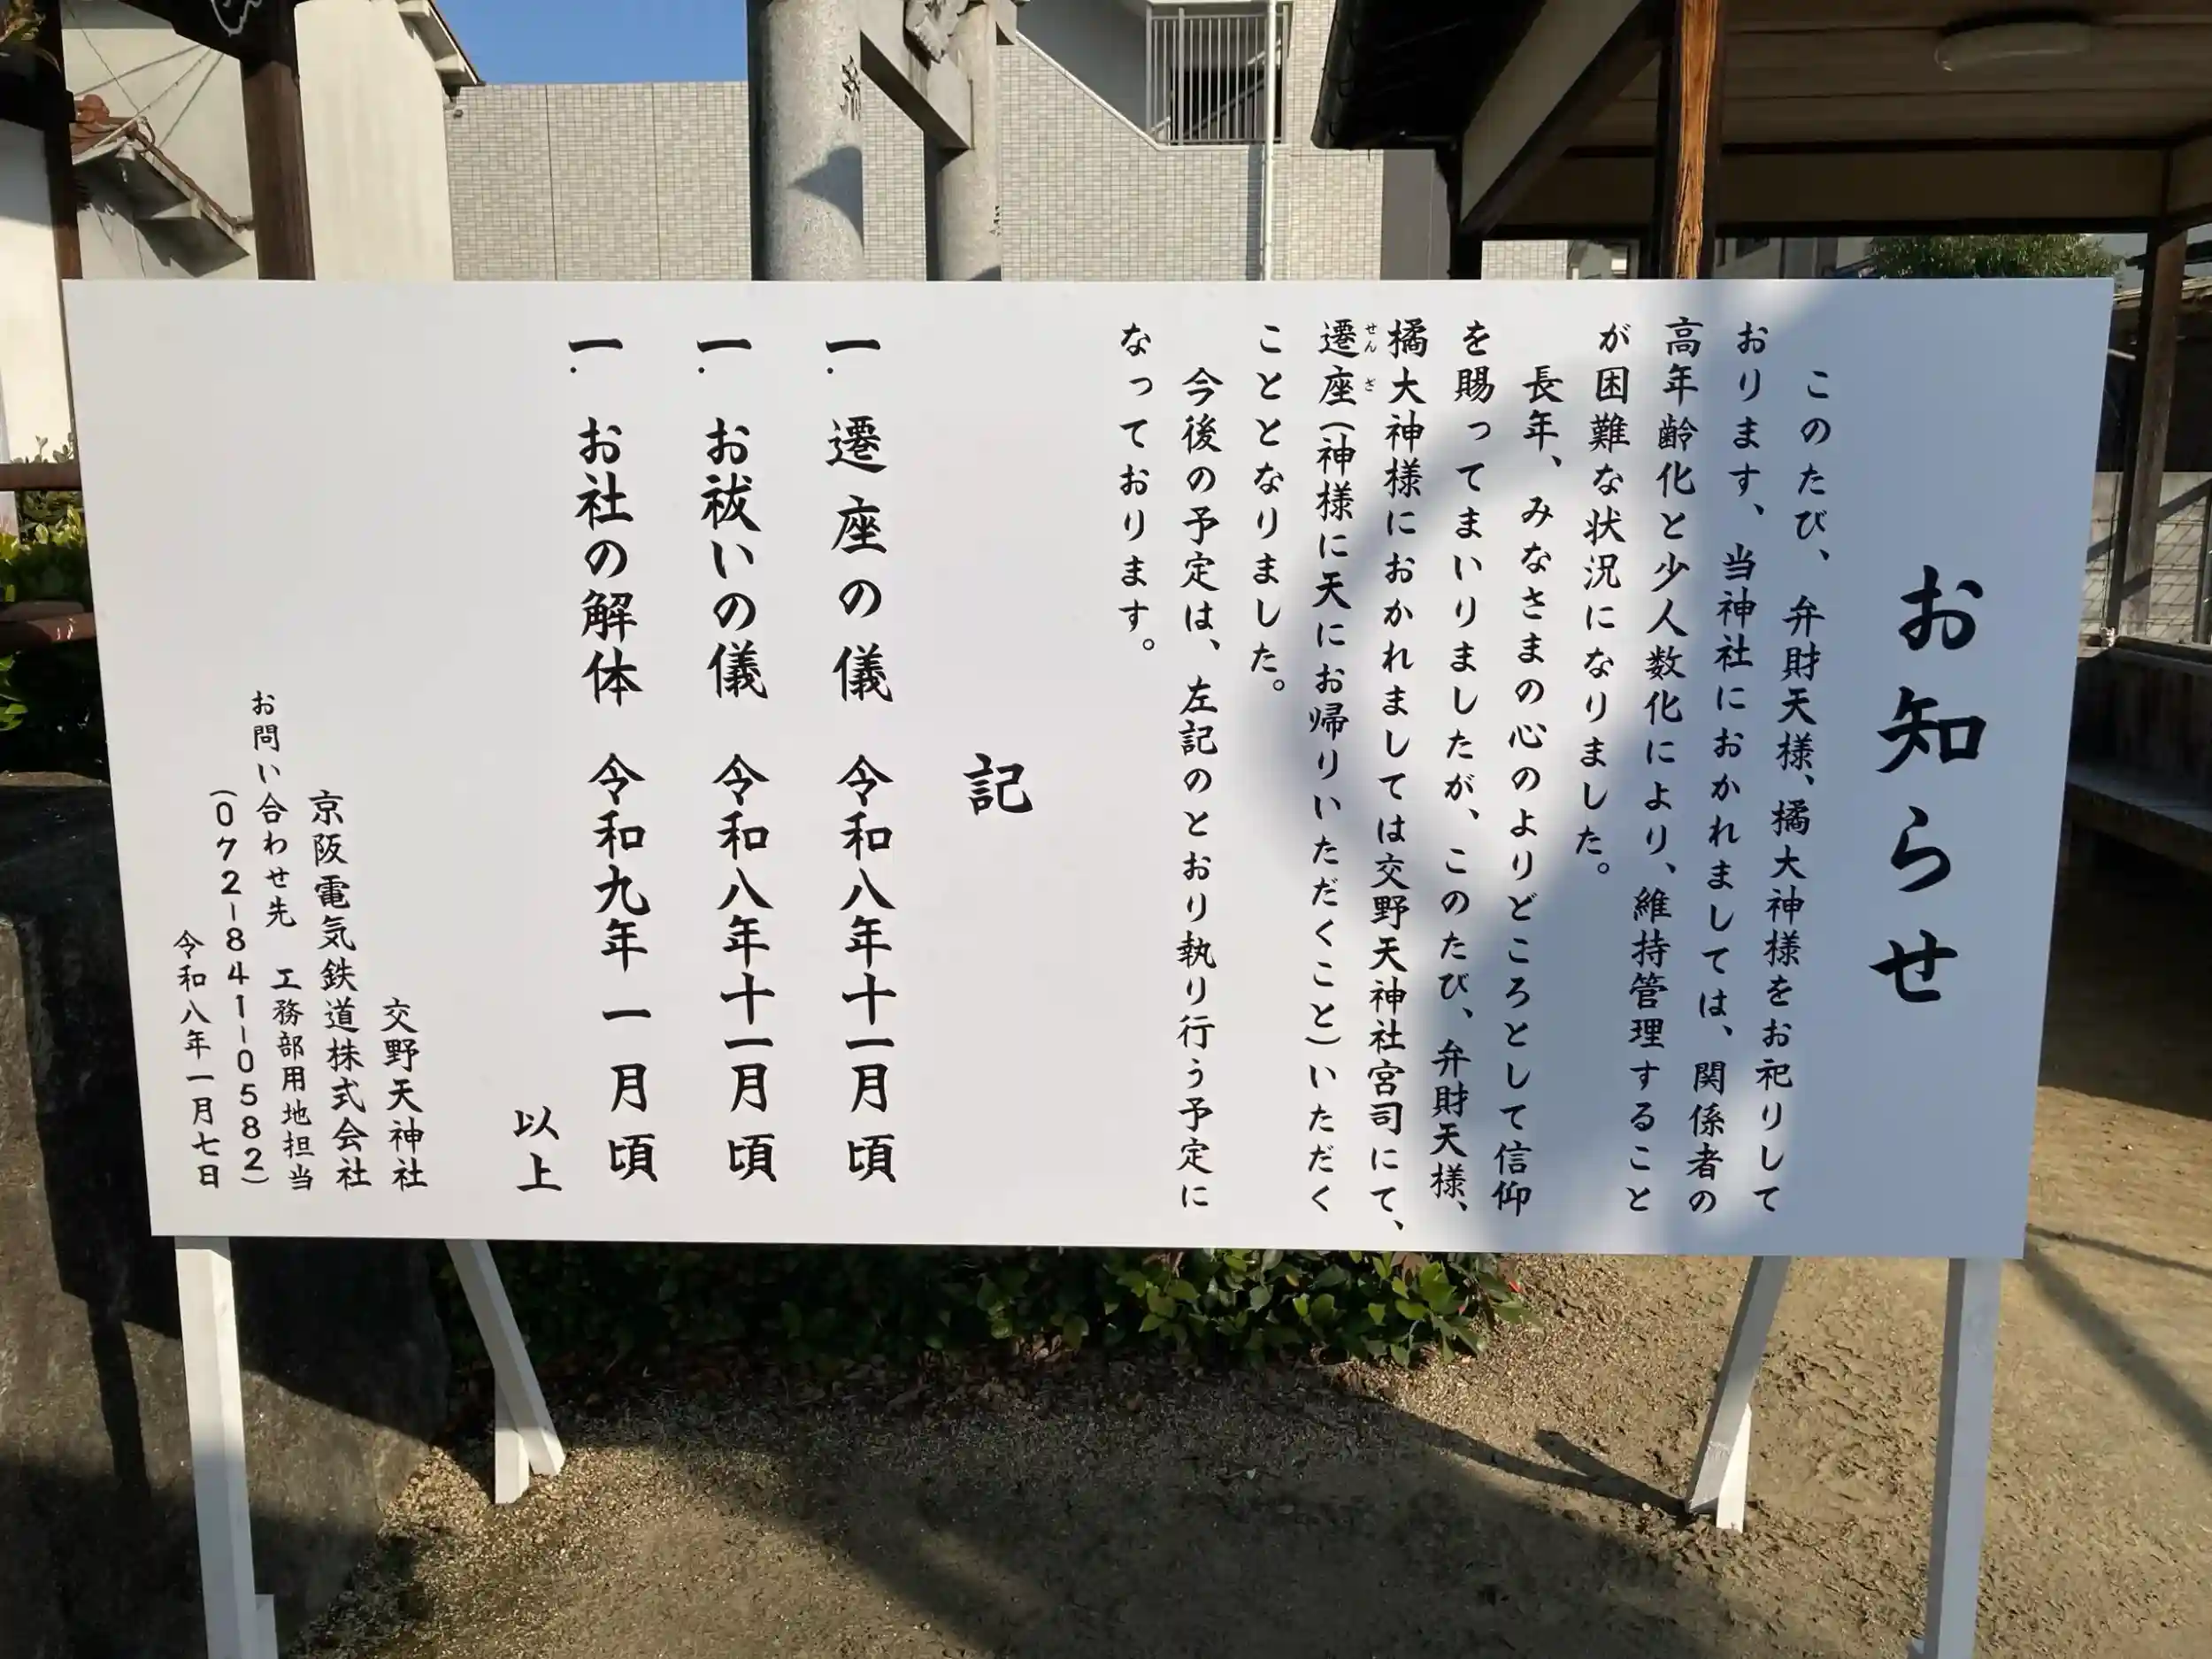 お知らせ
このたび、弁財天様、橘大神様をお祀りして
おります、当神社におかれましては、関係者の
高年齢化と少人数化により、維持管理すること
が困難な状況になりました。
長年、みなさまの心のよりどころとして信仰
を賜ってまいりましたが、このたび、弁財天様、
橘大神様におかれましては交野天神社宮司にて、
遷座(神様に天にお帰りいただくこと)いただく
せんざ
こととなりました。
今後の予定は、左記のとおり執り行う予定に
なっております。
記
一.遷座の儀 令和八年十一月頃
一.お祓いの儀 令和八年十一月頃
一.お社の解体 令和九年一月頃
以上
交野天神社
京阪電気鉄道株式会社
お問い合わせ先 工務部用地担当
(072-841-0582)
令和八年一月七日